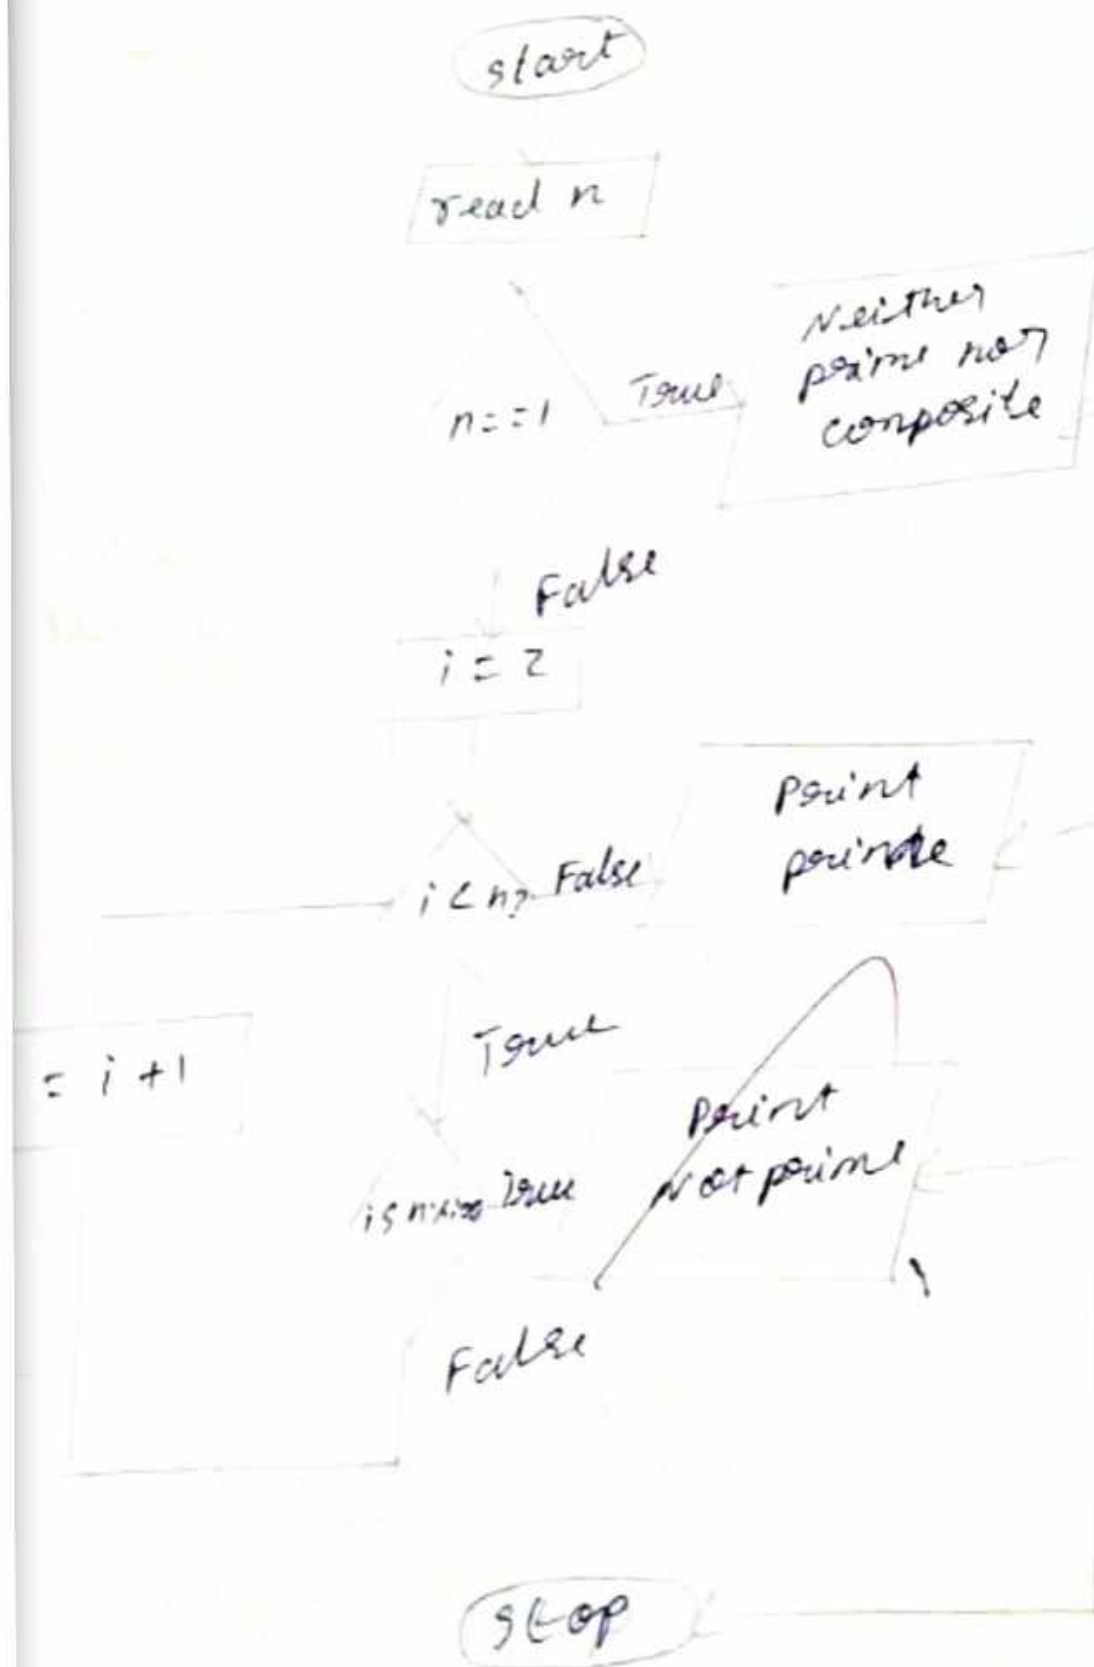 start
read n
n==1
True
Neither
prime nor
composite
False
i = 2
i < n?
False
Print
prime
True
= i +1
is n%i==0
True
Print
Not prime
False
Stop